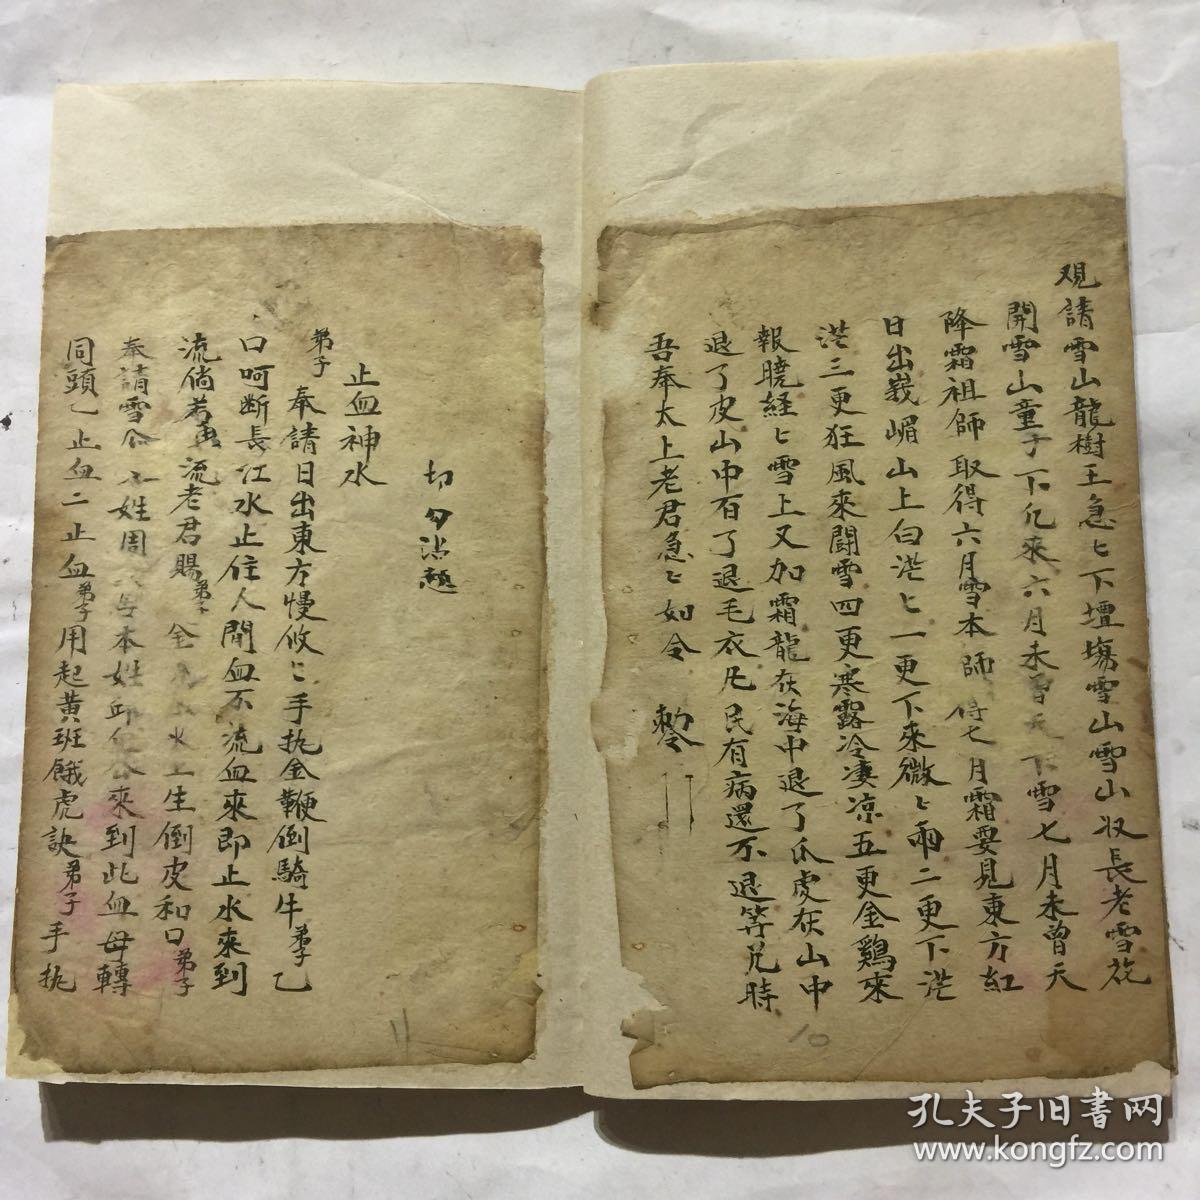 观請雪山龍樹王急匕下壇塲雪山雪山収長老雪花
開雪山童子下凢來六月未雪天下雪七月未曾天
降霜祖師取得六月雪本師得七月霜要見東方紅
日出峩嵋山上白茫匕一更下來微匕雨二更下茫
茫三更狂風來鬪雪四更寒露冷凄凉五更金鷄來
報曉経匕雪上又加霜龍在海中退了爪虎在山中
退了皮山中百了退毛衣凡民有病還不退等児時
吾奉太上老君急匕如令 勅
10
切勺沾題
止血神水
弟子奉請日出東方慢攸匕手执金鞭倒騎牛弟子乙
口呵断長江水止住人間血不流血來即止水來到
流倘若血流老君賜弟子金水上生倒皮和口弟子
奉請雪公姓周母本姓邱來到此血母轉
同頭乙止血二止血弟子用起黄班餓虎訣弟子手执
11
孔夫子旧书网
www.kongfz.com